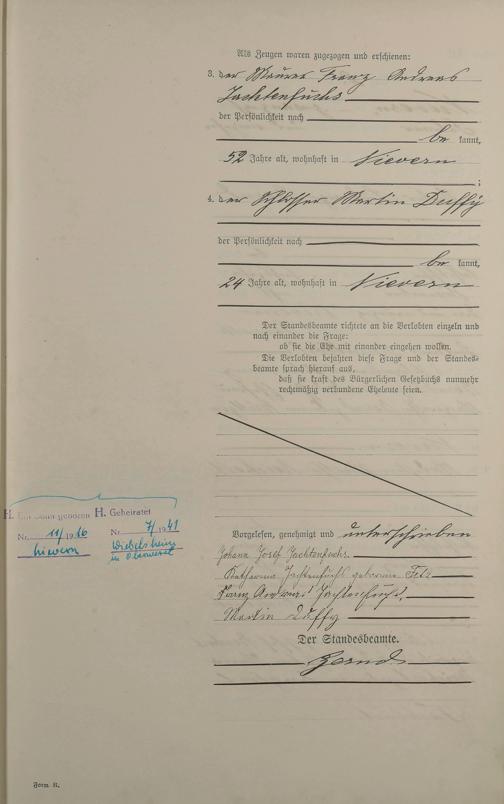 Als Zeugen waren zugezogen und erschienen:
3. der Maurer Franz Andreas
Jachtenfuchs
der Persönlichkeit nach
be kannt,
52 Jahre alt, wohnhaft in Nievern
;
4. der Schlosser Martin Duffy
der Persönlichkeit nach
be kannt,
24 Jahre alt, wohnhaft in Nievern
Der Standesbeamte richtete an die Verlobten einzeln und
nach einander die Frage:
ob sie die Ehe mit einander eingehen wollen.
Die Verlobten bejahten diese Frage und der Standes-
beamte sprach hierauf aus,
daß sie kraft des Bürgerlichen Gesetzbuchs nunmehr
rechtmäßig verbundene Eheleute seien.
H. Ein Sohn geboren
Nr. 11/1916
Nievern
H. Geheiratet
Nr. 7/1941
Wiebelsheim
in Oberwesel
Vorgelesen, genehmigt und unterschrieben
Johann Josef Jachtenfuchs.
Katharina Jachtenfuchs geborene
Franz Andreas Jachtenfuchs.
Martin Duffy
Der Standesbeamte.
Form B.